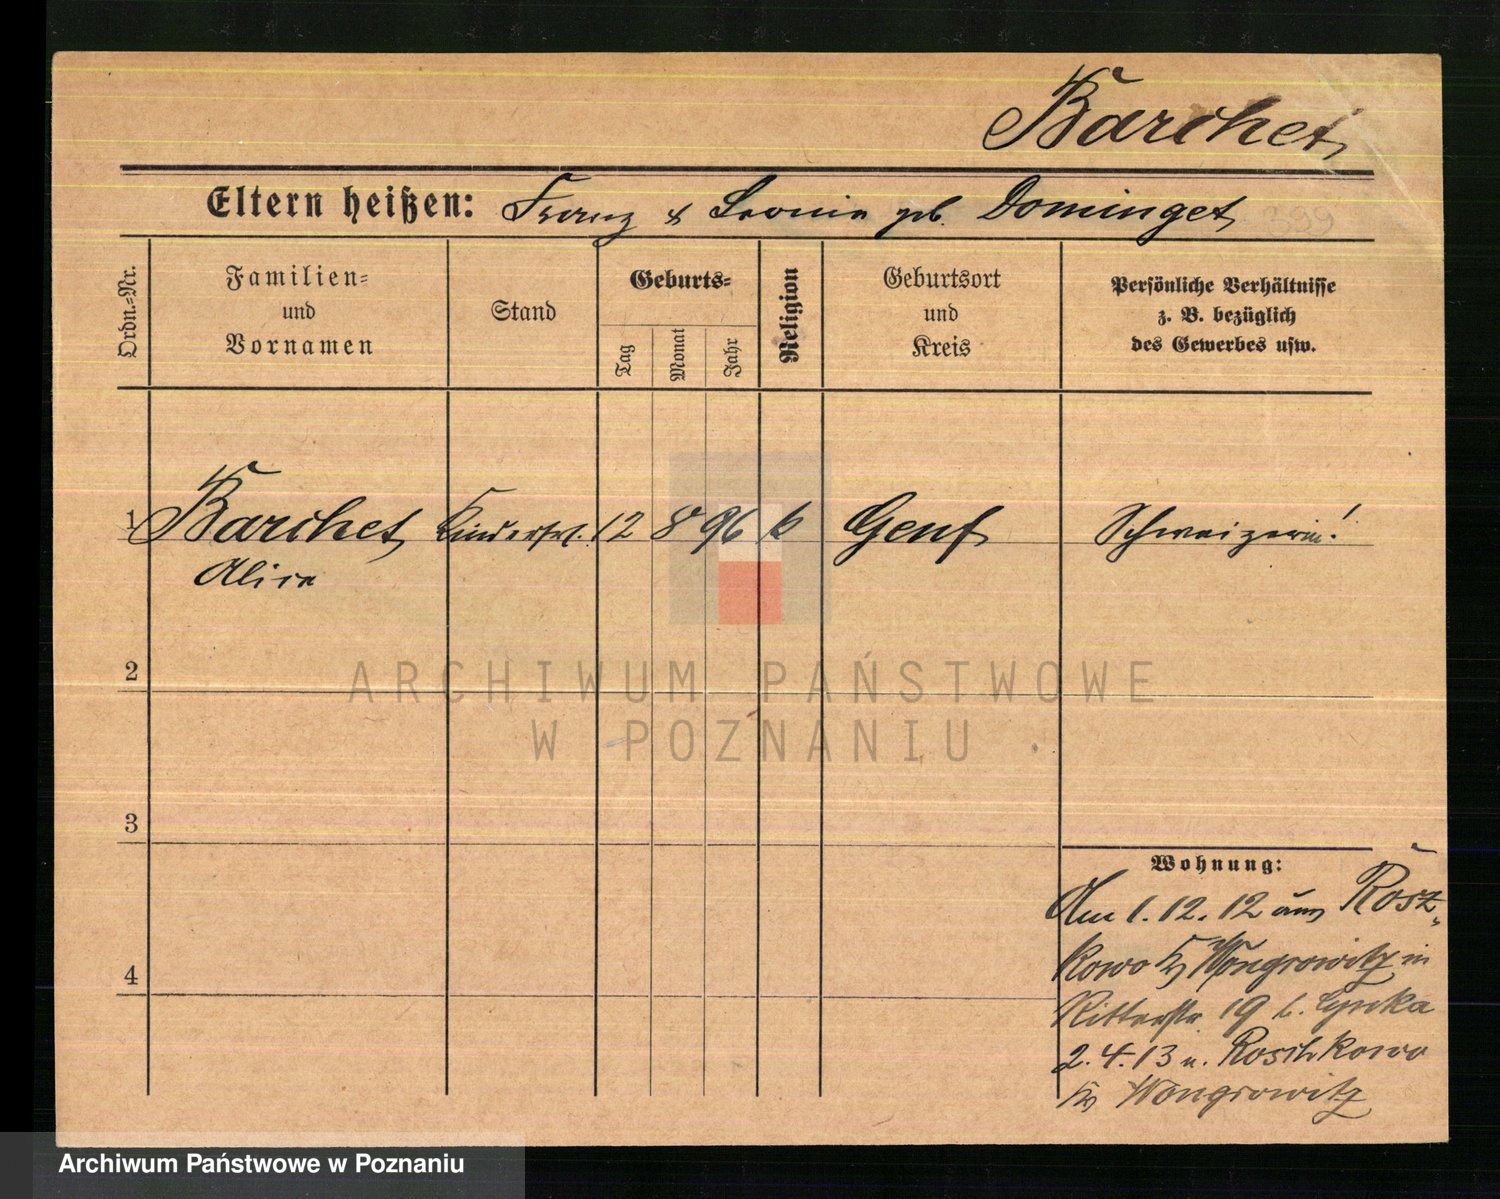 Barchet
Eltern heißen: Franz & Leonie geb. Dominget
399
Ordn.-Nr.
Familien-
und
Vornamen
Stand
Geburts-
Tag
Monat
Jahr
Religion
Geburtsort
und
Kreis
Persönliche Verhältnisse
z. B. bezüglich
des Gewerbes usw.
1 Barchet Kinderfrl. 12 8 96 k Genf Schweizerin!
Alice
2
ARCHIWUM PAŃSTWOWE
W POZNANIU
3
Wohnung:
Am 1.12.12 aus Rosz-
4 kowo Kr Wongrowitz in
Ritterstr. 19 b.
2.4.13 n. Roschkowo
Kr Wongrowitz
Archiwum Państwowe w Poznaniu